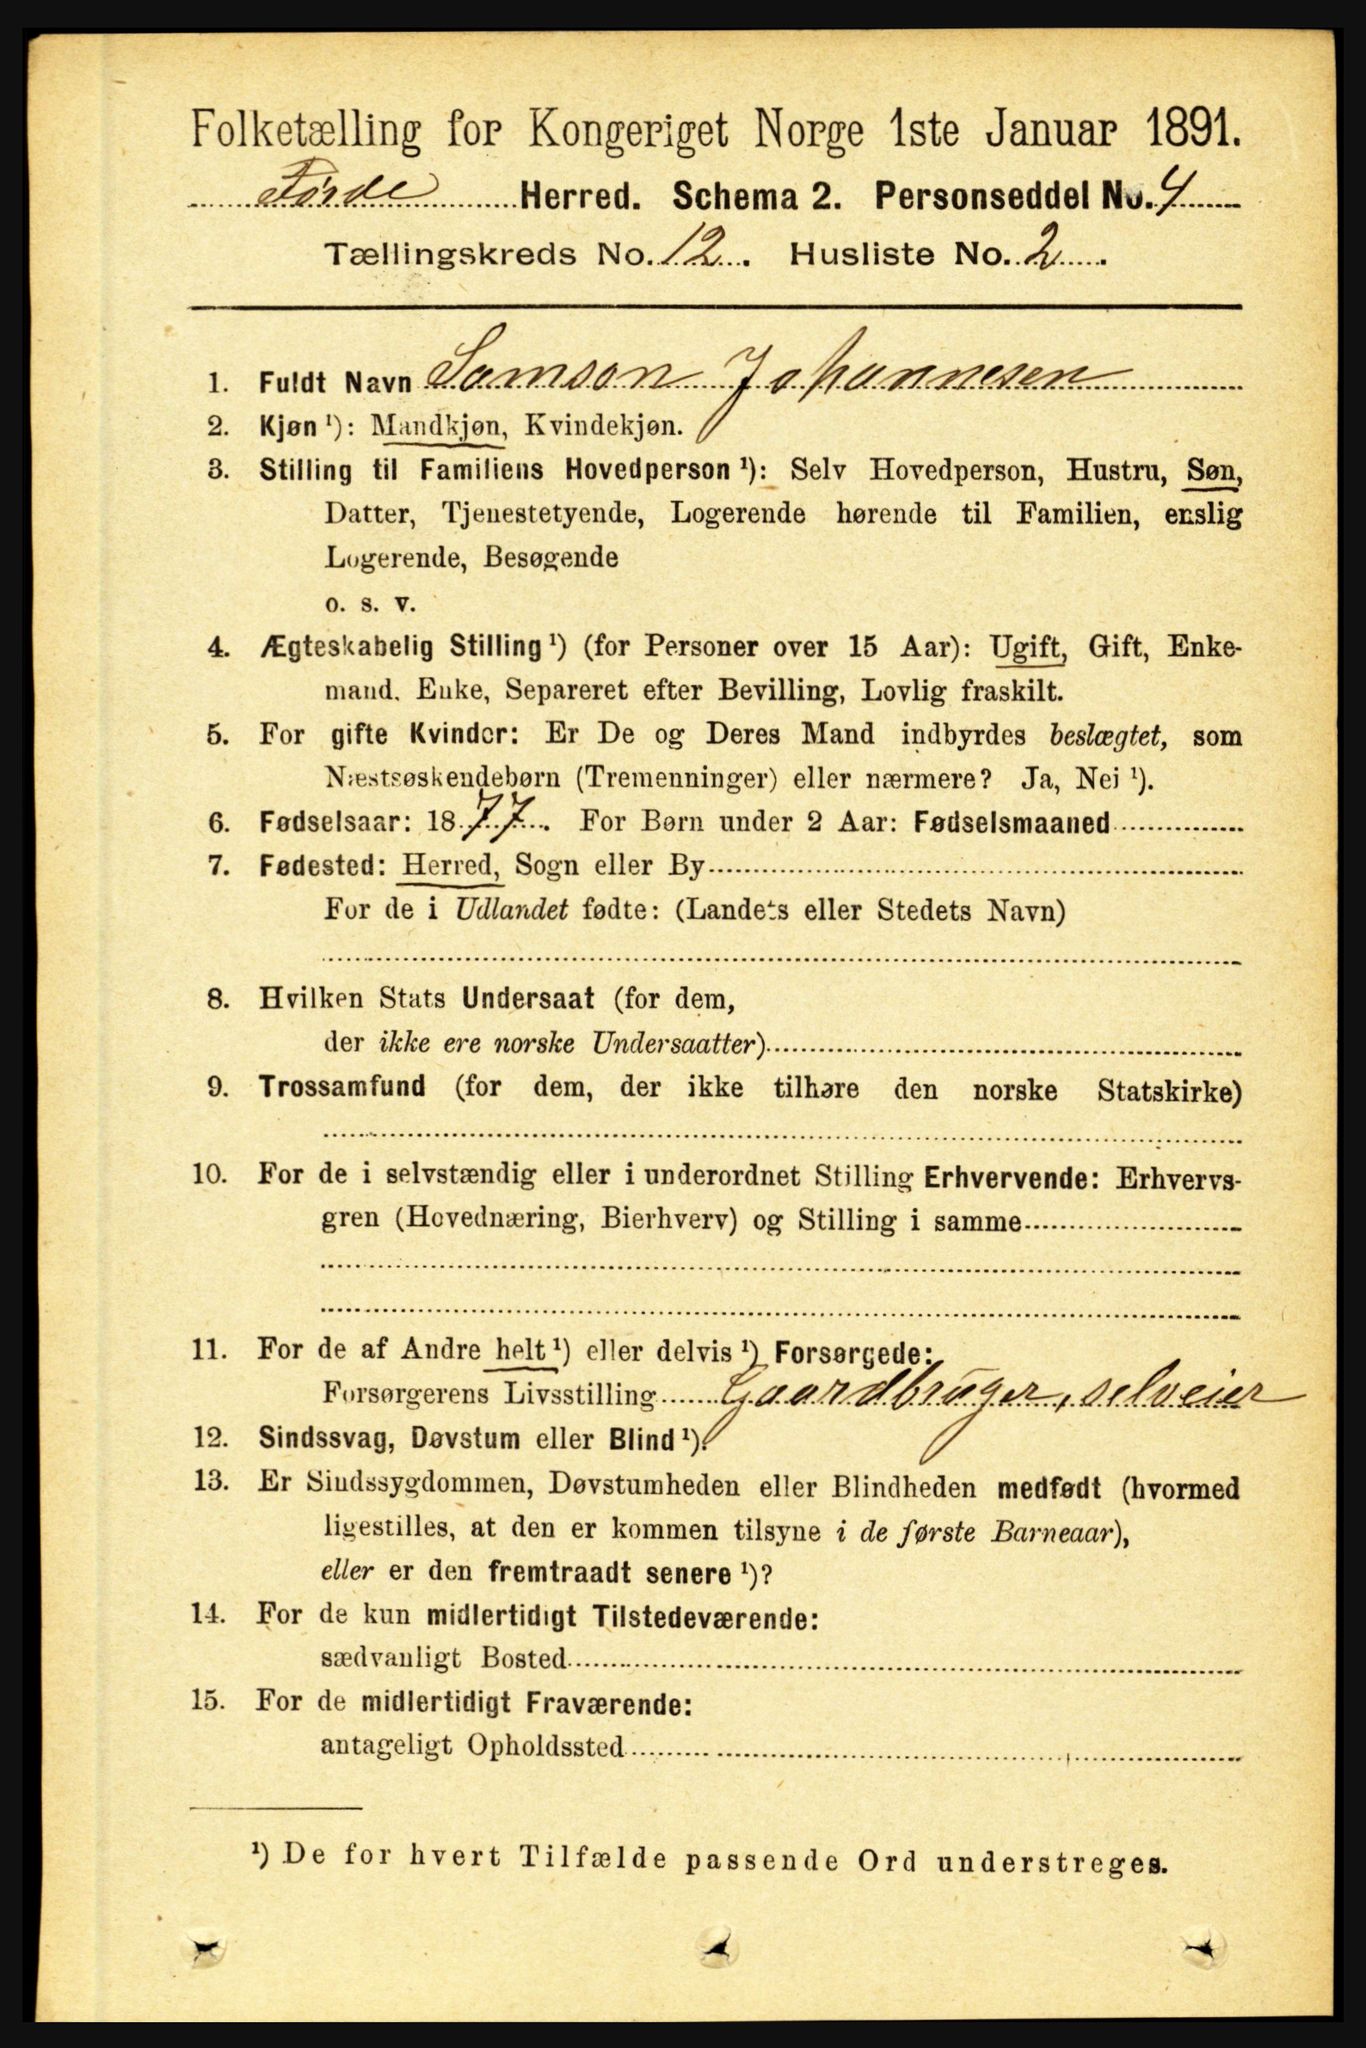 Folketælling for Kongeriget Norge 1ste Januar 1891.
Førde Herred. Schema 2. Personseddel No. 4
Tællingskreds No. 12. Husliste No. 2.
1. Fuldt Navn Samson Johannesen
2. Kjøn ¹): Mandkjøn, Kvindekjøn.
3. Stilling til Familiens Hovedperson ¹): Selv Hovedperson, Hustru, Søn,
Datter, Tjenestetyende, Logerende hørende til Familien, enslig
Logerende, Besøgende
o. s. v.
4. Ægteskabelig Stilling ¹) (for Personer over 15 Aar): Ugift, Gift, Enke-
mand, Enke, Separeret efter Bevilling, Lovlig fraskilt.
5. For gifte Kvinder: Er De og Deres Mand indbyrdes beslægtet, som
Næstsøskendebørn (Tremenninger) eller nærmere? Ja, Nei ¹).
6. Fødselsaar: 1877. For Børn under 2 Aar: Fødselsmaaned
7. Fødested: Herred, Sogn eller By
For de i Udlandet fødte: (Landets eller Stedets Navn)
8. Hvilken Stats Undersaat (for dem,
der ikke ere norske Undersaatter)
9. Trossamfund (for dem, der ikke tilhøre den norske Statskirke)
10. For de i selvstændig eller i underordnet Stilling Erhvervende: Erhvervs-
gren (Hovednæring, Bierhverv) og Stilling i samme
11. For de af Andre helt ¹) eller delvis ¹) Forsørgede:
Forsørgerens Livsstilling Gaardbruger, selveier
12. Sindssvag, Døvstum eller Blind ¹).
13. Er Sindssygdommen, Døvstumheden eller Blindheden medfødt (hvormed
ligestilles, at den er kommen tilsyne i de første Barneaar),
eller er den fremtraadt senere ¹)?
14. For de kun midlertidigt Tilstedeværende:
sædvanligt Bosted
15. For de midlertidigt Fraværende:
antageligt Opholdssted
¹) De for hvert Tilfælde passende Ord understreges.